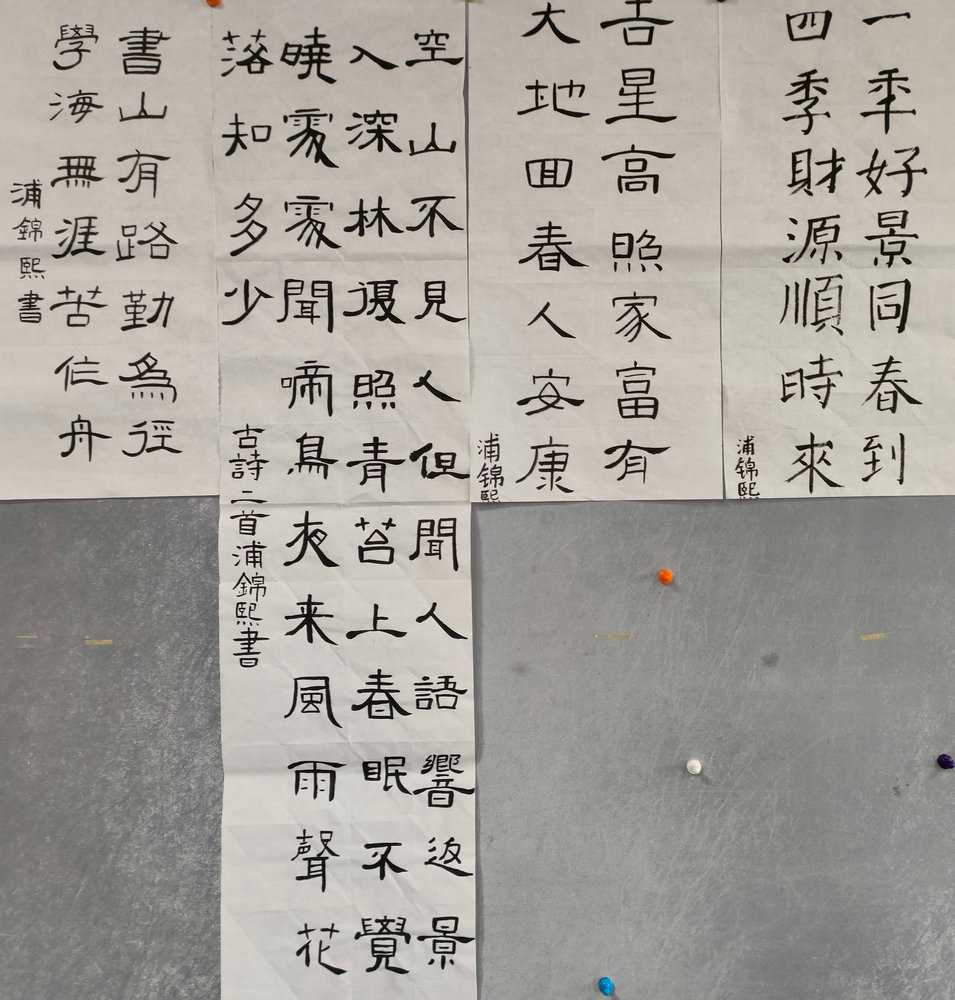 一年好景同春到
四季財源順時來
浦锦熙
吉星高照家富有
大地回春人安康
浦锦熙
空山不見人但聞人語響返景
入深林復照青苔上春眠不覺
曉處處聞啼鳥夜来風雨聲花
落知多少
古詩二首浦錦熙書
書山有路勤為徑
學海無涯苦作舟
浦錦熙書